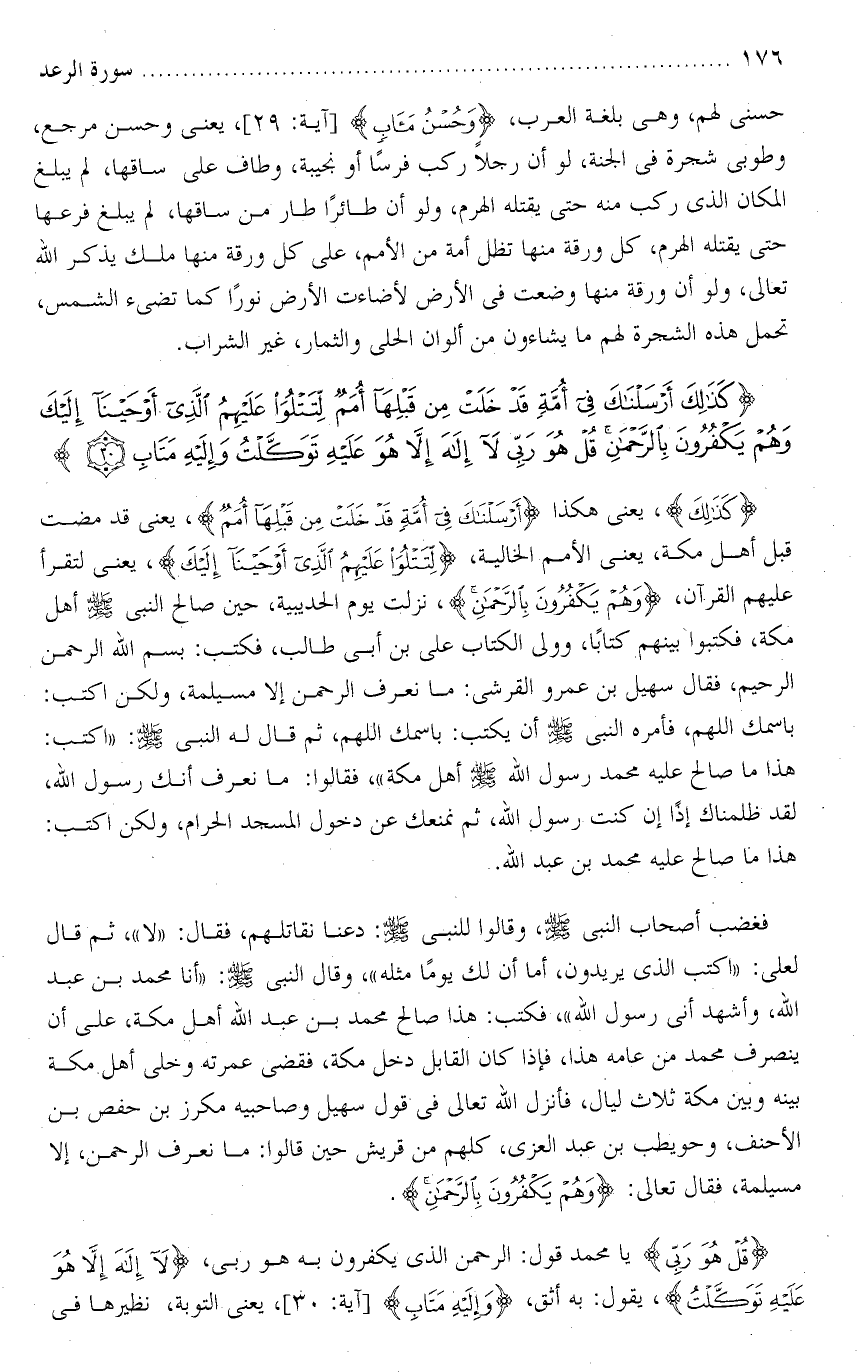 ١٧٦ ........................................................................ سورة الرعد
حسنى لهم، وهى بلغة العرب، ﴿وَحُسْنُ مَـَٔابٍ﴾ [آية: ٢٩]، يعنى وحسن مرجع،
وطوبى شجرة فى الجنة، لو أن رجلاً ركب فرسًا أو نجيبة، وطاف على ساقها، لم يبلغ
المكان الذى ركب منه حتى يقتله الهرم، ولو أن طائرًا طار من ساقها، لم يبلغ فرعها
حتى يقتله الهرم، كل ورقة منها تظل أمة من الأمم، على كل ورقة منها ملك يذكر الله
تعالى، ولو أن ورقة منها وضعت فى الأرض لأضاءت الأرض نورًا كما تضىء الشمس،
تحمل هذه الشجرة لهم ما يشاءون من ألوان الحلى والثمار، غير الشراب.
﴿كَذَٰلِكَ أَرْسَلْنَٰكَ فِىٓ أُمَّةٍ قَدْ خَلَتْ مِن قَبْلِهَآ أُمَمٌ لِّتَتْلُوَا۟ عَلَيْهِمُ ٱلَّذِىٓ أَوْحَيْنَآ إِلَيْكَ
وَهُمْ يَكْفُرُونَ بِٱلرَّحْمَٰنِ ۚ قُلْ هُوَ رَبِّى لَآ إِلَٰهَ إِلَّا هُوَ عَلَيْهِ تَوَكَّلْتُ وَإِلَيْهِ مَتَابِ ۝٣٠﴾
﴿كَذَٰلِكَ﴾، يعنى هكذا ﴿أَرْسَلْنَٰكَ فِىٓ أُمَّةٍ قَدْ خَلَتْ مِن قَبْلِهَآ أُمَمٌ﴾، يعنى قد مضت
قبل أهل مكة، يعنى الأمم الخالية، ﴿لِّتَتْلُوَا۟ عَلَيْهِمُ ٱلَّذِىٓ أَوْحَيْنَآ إِلَيْكَ﴾، يعنى لتقرأ
عليهم القرآن، ﴿وَهُمْ يَكْفُرُونَ بِٱلرَّحْمَٰنِ ۚ﴾، نزلت يوم الحديبية، حين صالح النبى ﷺ أهل
مكة، فكتبوا بينهم كتابًا، وولى الكتاب على بن أبى طالب، فكتب: بسم الله الرحمن
الرحيم، فقال سهيل بن عمرو القرشى: ما نعرف الرحمن إلا مسيلمة، ولكن اكتب:
باسمك اللهم، فأمره النبى ﷺ أن يكتب: باسمك اللهم، ثم قال له النبى ﷺ: «اكتب:
هذا ما صالح عليه محمد رسول الله ﷺ أهل مكة»، فقالوا: ما نعرف أنك رسول الله،
لقد ظلمناك إذًا إن كنت رسول الله، ثم نمنعك عن دخول المسجد الحرام، ولكن اكتب:
هذا ما صالح عليه محمد بن عبد الله.
فغضب أصحاب النبى ﷺ، وقالوا للنبى ﷺ: دعنا نقاتلهم، فقال: «لا»، ثم قال
لعلى: «اكتب الذى يريدون، أما أن لك يومًا مثله»، وقال النبى ﷺ: «أنا محمد بن عبد
الله، وأشهد أنى رسول الله»، فكتب: هذا صالح محمد بن عبد الله أهل مكة، على أن
ينصرف محمد من عامه هذا، فإذا كان القابل دخل مكة، فقضى عمرته وخلى أهل مكة
بينه وبين مكة ثلاث ليال، فأنزل الله تعالى فى قول سهيل وصاحبيه مكرز بن حفص بن
الأحنف، وحويطب بن عبد العزى، كلهم من قريش حين قالوا: ما نعرف الرحمن، إلا
مسيلمة، فقال تعالى: ﴿وَهُمْ يَكْفُرُونَ بِٱلرَّحْمَٰنِ ۚ﴾.
﴿قُلْ هُوَ رَبِّى﴾ يا محمد قول: الرحمن الذى يكفرون به هو ربى، ﴿لَآ إِلَٰهَ إِلَّا هُوَ
عَلَيْهِ تَوَكَّلْتُ﴾، يقول: به أثق، ﴿وَإِلَيْهِ مَتَابِ﴾ [آية: ٣٠]، يعنى التوبة، نظيرها فى